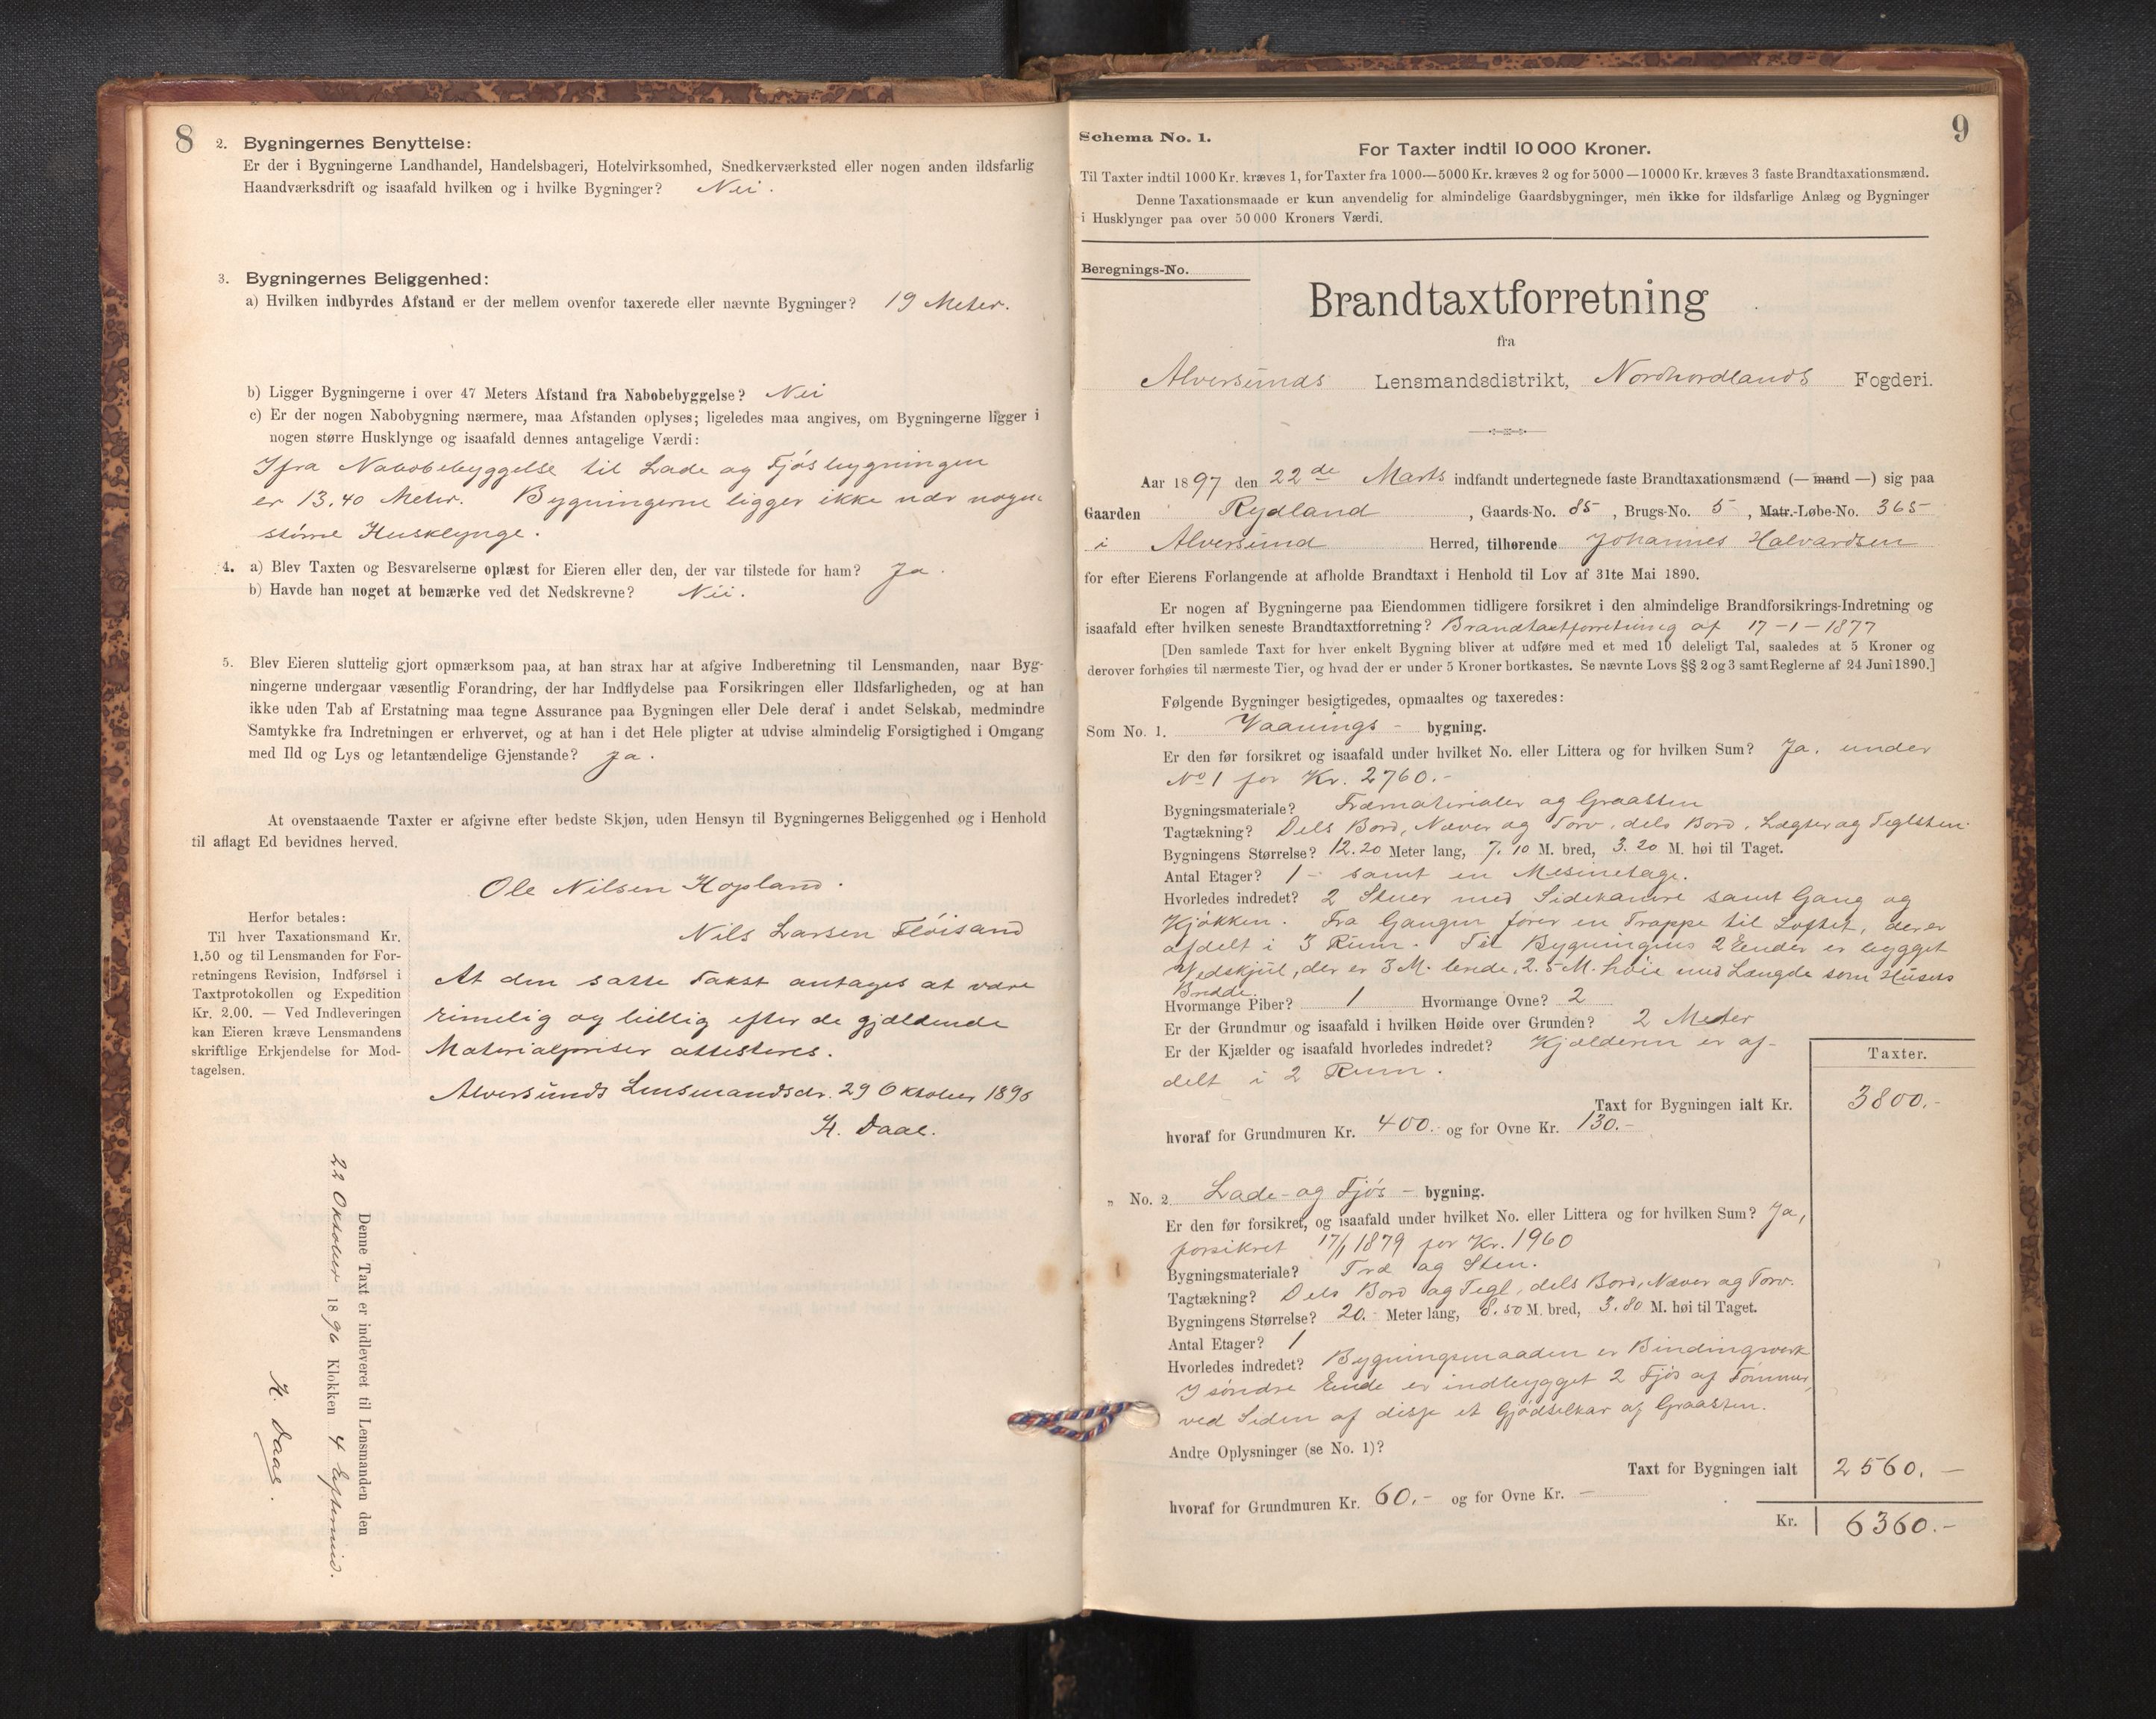 8
2. Bygningernes Benyttelse:
Er der i Bygningerne Landhandel, Handelsbageri, Hotelvirksomhed, Snedkerværksted eller nogen anden ildsfarlig
Haandværksdrift og isaafald hvilken og i hvilke Bygninger? Nei.
3. Bygningernes Beliggenhed:
a) Hvilken indbyrdes Afstand er der mellem ovenfor taxerede eller nævnte Bygninger? 19 Meter.
b) Ligger Bygningerne i over 47 Meters Afstand fra Nabobebyggelse? Nei
c) Er der nogen Nabobygning nærmere, maa Afstanden oplyses; ligeledes maa angives, om Bygningerne ligger i
nogen større Husklynge og isaafald dennes antagelige Værdi:
Ifra Nabobebyggelse til Lade og Fjøsbygningen
er 13,40 Meter. Bygningerne ligger ikke nær nogen
større Husklynge.
4. a) Blev Taxten og Besvarelserne oplæst for Eieren eller den, der var tilstede for ham? Ja.
b) Havde han noget at bemærke ved det Nedskrevne? Nei.
5. Blev Eieren sluttelig gjort opmærksom paa, at han strax har at afgive Indberetning til Lensmanden, naar Byg-
ningerne undergaar væsentlig Forandring, der har Indflydelse paa Forsikringen eller Ildsfarligheden, og at han
ikke uden Tab af Erstatning maa tegne Assurance paa Bygningen eller Dele deraf i andet Selskab, medmindre
Samtykke fra Indretningen er erhvervet, og at han i det Hele pligter at udvise almindelig Forsigtighed i Omgang
med Ild og Lys og letantændelige Gjenstande? Ja.
At ovenstaaende Taxter er afgivne efter bedste Skjøn, uden Hensyn til Bygningernes Beliggenhed og i Henhold
til aflagt Ed bevidnes herved.
Ole Nilsen Hopland.
Nils Larsen Fløisand
Herfor betales:
Til hver Taxationsmand Kr.
1.50 og til Lensmanden for For-
retningens Revision, Indførsel i
Taxtprotokollen og Expedition
Kr. 2.00. — Ved Indleveringen
kan Eieren kræve Lensmandens
skriftlige Erkjendelse for Mod-
tagelsen.
At den satte Takst antages at være
rimelig og billig efter de gjældende
Materialpriser attesteres.
Alversunds Lensmandsdr. 29 Oktober 1896
H. Daae.
Denne Taxt er indleveret til Lensmanden den
22 Oktober 1896 Klokken 4 Eftermid.
H. Daae.
9
Schema No. 1.
For Taxter indtil 10 000 Kroner.
Til Taxter indtil 1000 Kr. kræves 1, for Taxter fra 1000—5000 Kr. kræves 2 og for 5000—10000 Kr. kræves 3 faste Brandtaxationsmænd.
Denne Taxationsmaade er kun anvendelig for almindelige Gaardsbygninger, men ikke for ildsfarlige Anlæg og Bygninger
i Husklynger paa over 50 000 Kroners Værdi.
Beregnings-No.
Brandtaxtforretning
fra
Alversunds Lensmandsdistrikt, Nordhordlands Fogderi.
Aar 1897 den 22de Marts indfandt undertegnede faste Brandtaxationsmænd (— mand —) sig paa
Gaarden Rydland, Gaards-No. 85, Brugs-No. 5, Matr.-Løbe-No. 365
i Alversund Herred, tilhørende Johannes Halvardsen
for efter Eierens Forlangende at afholde Brandtaxt i Henhold til Lov af 31te Mai 1890.
Er nogen af Bygningerne paa Eiendommen tidligere forsikret i den almindelige Brandforsikrings-Indretning og
isaafald efter hvilken seneste Brandtaxtforretning? Brandtaxtforretning af 17-1-1877
[Den samlede Taxt for hver enkelt Bygning bliver at udføre med et med 10 deleligt Tal, saaledes at 5 Kroner og
derover forhøies til nærmeste Tier, og hvad der er under 5 Kroner bortkastes. Se nævnte Lovs §§ 2 og 3 samt Reglerne af 24 Juni 1890.]
Følgende Bygninger besigtigedes, opmaaltes og taxeredes:
Som No. 1. Vaanings - bygning.
Er den før forsikret og isaafald under hvilket No. eller Littera og for hvilken Sum? Ja, under
No 1 for Kr. 2760.-
Bygningsmateriale? Træmaterialer og Graasten
Tagtækning? Dels Bord, Næver og Torv, dels Bord, Lægter og Teglsten.
Bygningens Størrelse? 12.20 Meter lang, 7.10 M. bred, 3.20 M. høi til Taget.
Antal Etager? 1 - samt en Mesinetage.
Hvorledes indredet? 2 Stuer med Sidekamre samt Gang og
Kjøkken. Fra Gangen fører en Trappe til Loftet, der er
afdelt i 3 Rum. Til Bygningens 2 Ender er bygget
Vedskjul, der er 3 M. brede, 2.5 M. høie med Længde som Husets
Bredde.
Hvormange Piber? 1 Hvormange Ovne? 2
Er der Grundmur og isaafald i hvilken Høide over Grunden? 2 Meter
Er der Kjælder og isaafald hvorledes indredet? Kjælderen er af-
delt i 2 Rum.
Taxter.
Taxt for Bygningen ialt Kr. 3800.-
hvoraf for Grundmuren Kr. 400.- og for Ovne Kr. 130.-
" No. 2 Lade- og Fjøs - bygning.
Er den før forsikret, og isaafald under hvilket No. eller Littera og for hvilken Sum? Ja,
forsikret 17/1 1879 for Kr. 1960
Bygningsmateriale? Træ og Sten.
Tagtækning? Dels Bord og Tegl, dels Bord, Næver og Torv.
Bygningens Størrelse? 20.- Meter lang, 8.50 M. bred, 3.80 M. høi til Taget.
Antal Etager? 1
Hvorledes indredet? Bygningsmaaden er Bindingsverk
I søndre Ende er indbygget 2 Fjøs af Tømmer,
ved Siden af disse et Gjødselkar af Graasten.
Andre Oplysninger (se No. 1)?
Taxt for Bygningen ialt 2560.—
hvoraf for Grundmuren Kr. 60.- og for Ovne Kr. —
Kr. 6360.-